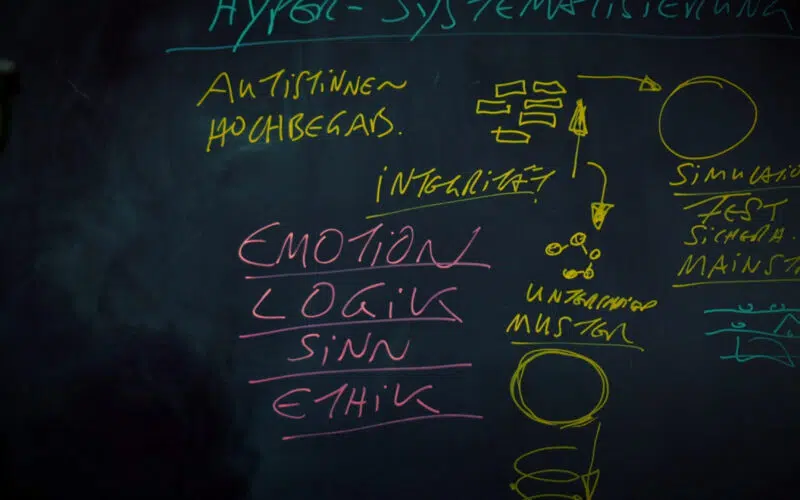 HYPER-SYSTEMATISIERUNG
AUTISTINNEN
HOCHBEGAB.
INTEGRITÄT
EMOTION
LOGIK
SINN
ETHIK
MUSTER
SIMULATIO
TEST
SICHERH.
MAINST